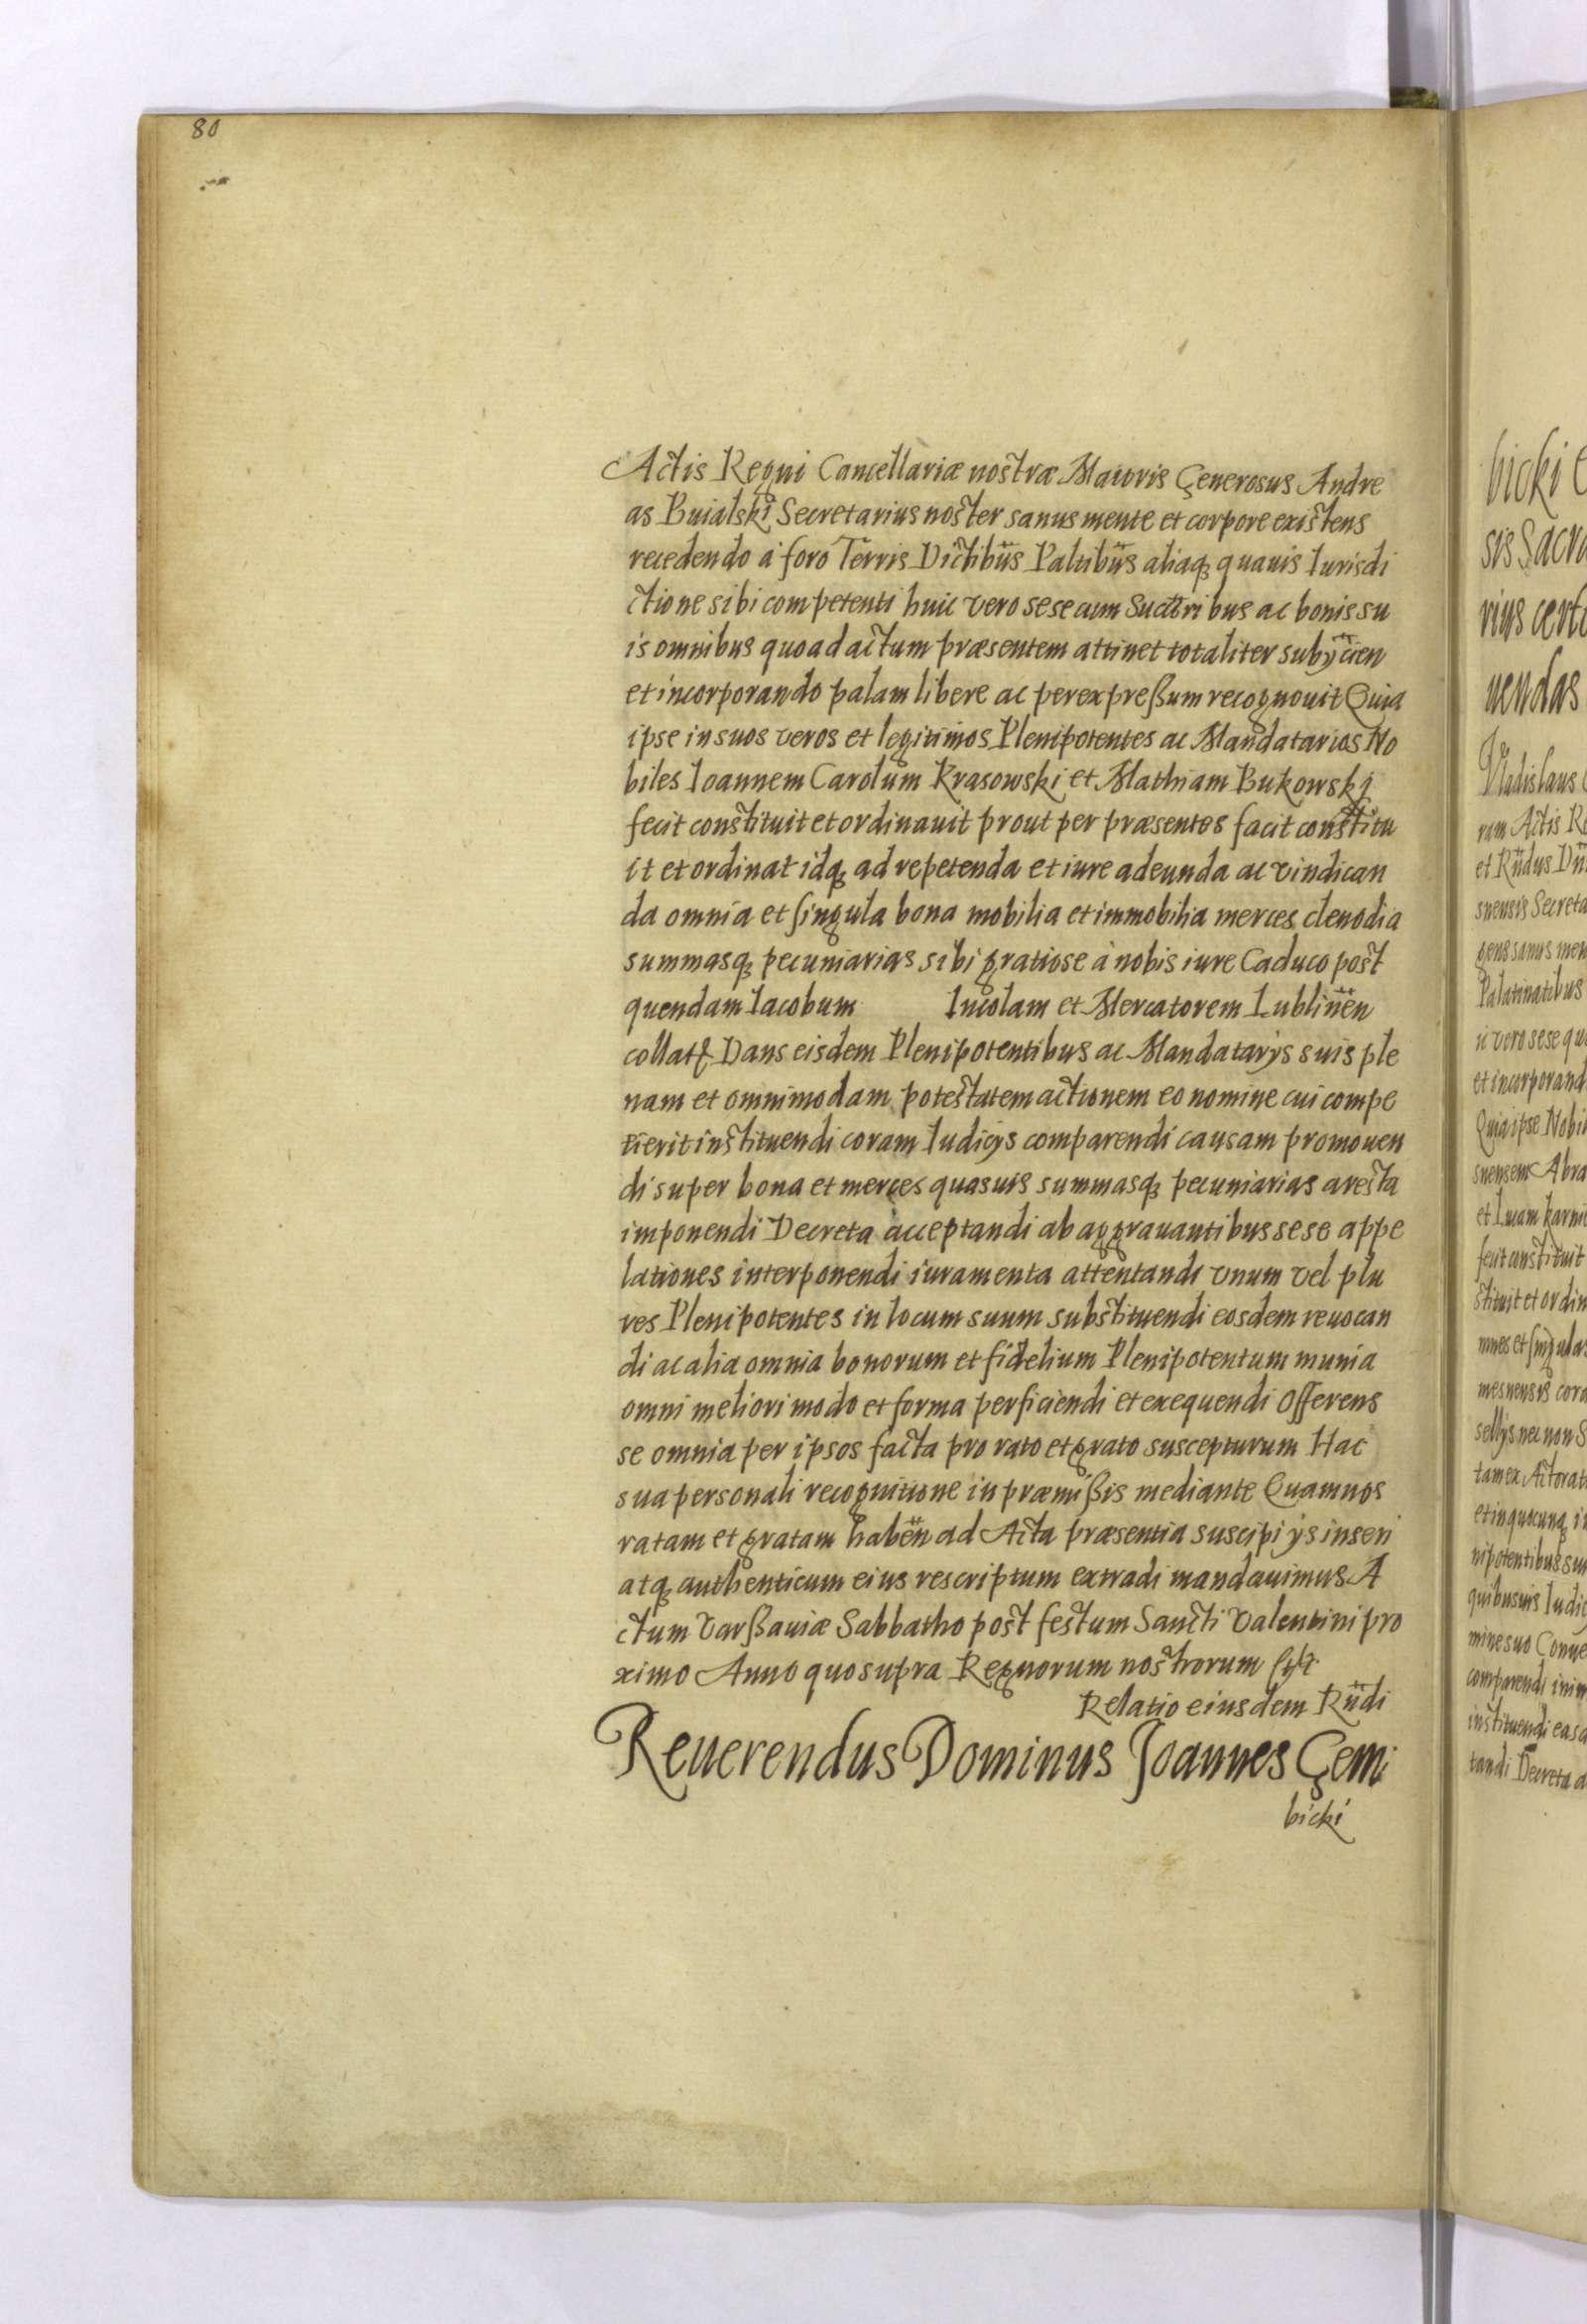 80
Actis Regni Cancellariæ nostræ Maioris Generosus Andre
as Buialski Secretarius noster sanus mente et corpore existens
recedendo à foro Terris Dictibus Paltibus aliaq quauis Iurisdi
ctione sibi competenti huic vero sese cum Suctribus ac bonis su
is omnibus quoad actum præsentem attinet totaliter subÿcien
et incorporando palam libere ac per expreßum recognouit Quia
ipse in suos veros et legitimos Plenipotentes ac Mandatarios No
biles Ioannem Carolum Krasowski et Mathiam Bukowski
fecit constituit et ordinauit prout per præsentes facit constitu
it et ordinat idq ad repetenda et iure adeunda ac vindican
da omnia et singula bona mobilia et immobilia merces clenodia
summasq pecuniarias sibi gratiose à nobis iure Caduco post
quendam Iacobum Incolam et Mercatorem Lublinen
collatt Dans eisdem Plenipotentibus ac Mandatarÿs suis ple
nam et omnimodam potestatem actionem eo nomine cui compe
tierit instituendi coram Iudicÿs comparendi causam promouen
di super bona et merces quasuis summasq pecuniarias aresta
imponendi Decreta acceptandi ab aggrauantibus sese appe
lationes interponendi iuramenta attentandi vnum vel plu
res Plenipotentes in locum suum substituendi eosdem reuocan
di ac alia omnia bonorum et fidelium Plenipotentum munia
omni meliori modo et forma perficiendi et exequendi Offerens
se omnia per ipsos facta pro rato et grato suscepturum Hac
sua personali recognitione in præmißis mediante Quam nos
ratam et gratam haben ad Acta præsentia suscipi ÿs inseri
atq authenticum eius rescriptum extradi mandauimus A
ctum Varßauiæ Sabbatho post festum Sancti Valentini pro
ximo Anno quo supra Regnorum nostrorum
Relatio eiusdem Rndi
Reuerendus Dominus Joannes Gem
bicki
bicki
sis Sacra
rius certo
uendas
Vladislaus
ram Actis Re
et Rndus Dn
snensis Secreta
gens sanus men
Palatinatibus
ic vero sese qu
et incorporand
Quia ipse Nobi
snensem Abra
fecit constituit
stituit et ordin
mnes et singulas
mesnensis cora
sellÿs nec non S
tam ex Actorat
et in quacunq i
nipotentibus su
quibusuis Iudic
mine suo Conue
comparendi inim
instituendi eas
tandi Decreta a